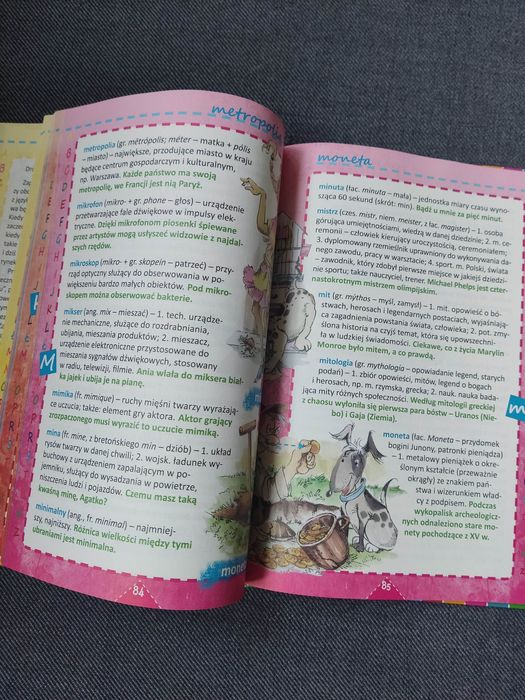 metropolia
metropolia (gr. mētrópolis; méter – matka + pólis
– miasto) – największe, przodujące miasto w kraju
będące centrum gospodarczym i kulturalnym,
np. Warszawa. Każde państwo ma swoją
metropolię, we Francji jest nią Paryż.
mikrofon (mikro- + gr. phone – głos) – urządzenie
przetwarzające fale dźwiękowe w impulsy elek-
tryczne. Dzięki mikrofonom piosenki śpiewane
przez artystów mogą usłyszeć widzowie z najdal-
szych rzędów.
mikroskop (mikro- + gr. skopein – patrzeć) – przy-
rząd optyczny służący do obserwowania w po-
większeniu bardzo małych obiektów. Pod mikro-
skopem można obserwować bakterie.
mikser (ang. mix – mieszać) – 1. tech. urządze-
nie mechaniczne, służące do rozdrabniania,
ubijania, mieszania produktów; 2. mieszacz,
urządzenie elektroniczne przystosowane do
mieszania sygnałów dźwiękowych, stosowany
w radiu, telewizji, filmie. Ania wlała do miksera biał-
ka jajek i ubija je na pianę.
mimika (fr. mimique) – ruchy mięśni twarzy wyrażają-
ce uczucia; także: element gry aktora. Aktor grający
zrozpaczonego musi wyrazić to uczucie mimiką.
mina (fr. mine, z bretońskiego min – dziób) – 1. układ
rysów twarzy w danej chwili; 2. wojsk. ładunek wy-
buchowy z urządzeniem zapalającym w po-
jemniku, służący do wysadzania w powietrze,
niszczenia ludzi i pojazdów. Czemu masz taką
kwaśną minę, Agatko?
minimalny (ang., fr. minimal) – najmniej-
szy, najniższy. Różnica wielkości między tymi
ubraniami jest minimalna.
M
84
moneta
minuta (łac. minuta – mała) – jednostka miary czasu wyno-
sząca 60 sekund (skrót: min). Bądź u mnie za pięć minut.
mistrz (czes. mistr, niem. meister, z łac. magister) – 1. osoba
górująca umiejętnościami, wiedzą w danej dziedzinie; 2. m. ce-
remonii – człowiek kierujący uroczystością, ceremoniałem;
3. dyplomowany rzemieślnik uprawniony do wykonywania da-
nego zawodu, pracy w warsztacie; 4. sport. m. Polski, świata
– zawodnik, który zdobył pierwsze miejsce w jakiejś dziedzi-
nie sportu; także nauczyciel, trener. Michael Phelps jest czter-
nastokrotnym mistrzem olimpijskim.
mit (gr. mýthos – myśl, zamysł) – 1. mit. opowieść o bó-
stwach, herosach i legendarnych postaciach, wyjaśniają-
ca zagadnienia powstania świata, człowieka; 2. pot. zmy-
ślona historia na czyjś temat, która się upowszechni-
ła w ludzkiej świadomości. Ciekawe, co z życia Marylin
Monroe było mitem, a co prawdą.
mitologia (gr. mythología – opowiadanie legend, starych
podań) – 1. zbiór opowieści, mitów, legend o bogach
i herosach, np. m. rzymska, grecka; 2. nauk. nauka bada-
jąca mity różnych społeczności. Według mitologii greckiej
z chaosu wyłoniła się pierwsza para bóstw – Uranos (Nie-
bo) i Gaja (Ziemia).
moneta (łac. Moneta – przydomek
bogini Junony, patronki pieniądza)
– metalowy pieniążek o okre-
ślonym kształcie (przeważnie
okrągły) ze znakiem pań-
stwa i wizerunkiem władcy
z podpisem. Podczas
wykopalisk archeologicz-
nych odnaleziono stare mo-
nety pochodzące z XV w.
85